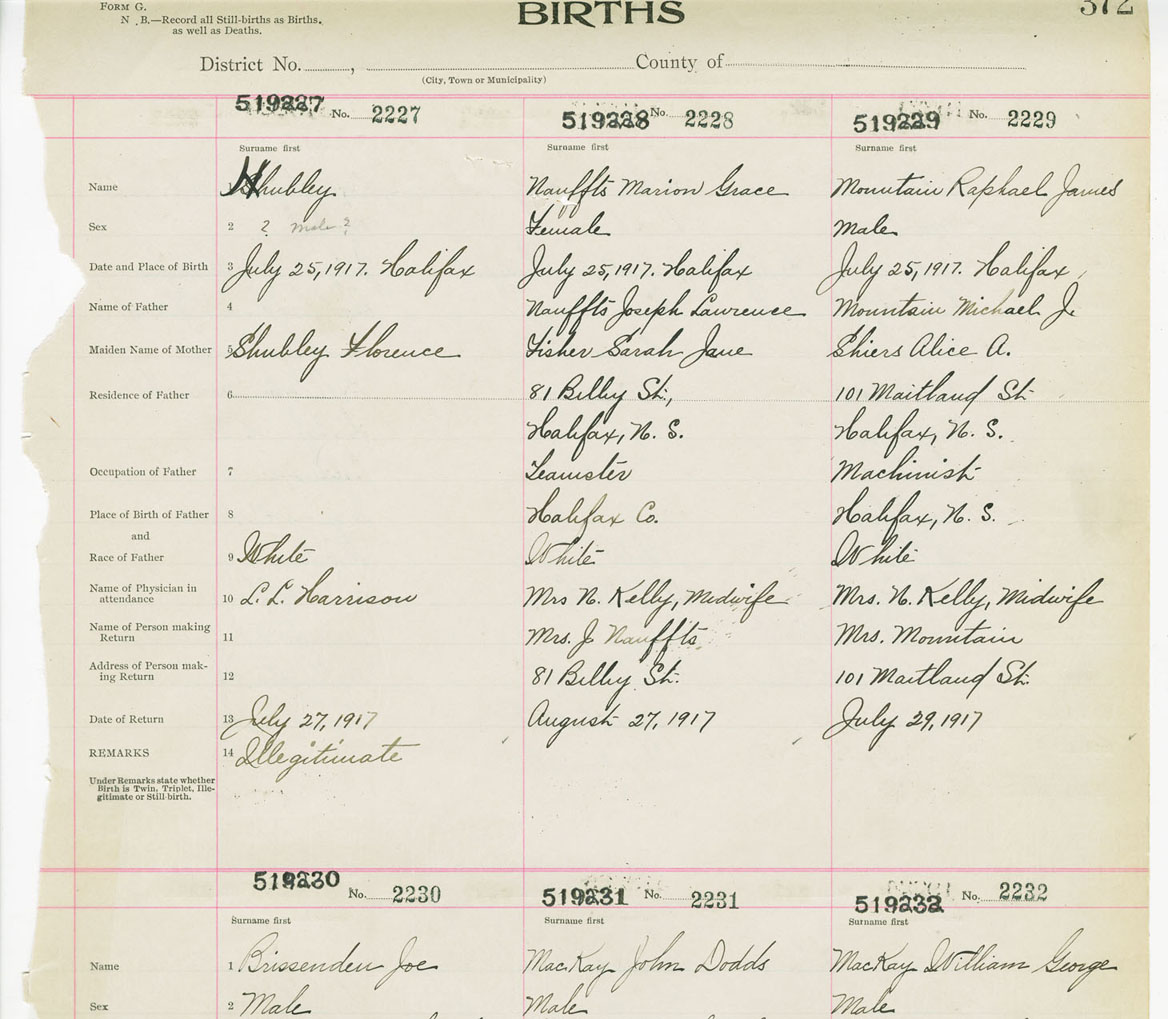 FORM G.
N. B.—Record all Still-births as Births, as well as Deaths.
BIRTHS
372
District No. , County of
(City, Town or Municipality)
519227 No. 2227 519228 No. 2228 519229 No. 2229
Surname first Surname first Surname first
Name 1 Shubley Nauffts Marion Grace Mountain Raphael James
Sex 2 ? Male ? Female Male
Date and Place of Birth 3 July 25, 1917. Halifax July 25, 1917. Halifax July 25, 1917. Halifax
Name of Father 4 Nauffts Joseph Lawrence Mountain Michael J.
Maiden Name of Mother 5 Shubley Florence Fisher Sarah Jane Shiers Alice A.
Residence of Father 6 81 Bilby St., 101 Maitland St.
Halifax, N. S. Halifax, N. S.
Occupation of Father 7 Teamster Machinist
Place of Birth of Father 8 Halifax Co. Halifax, N. S.
and
Race of Father 9 White White White
Name of Physician in attendance 10 L. L. Harrison Mrs N. Kelly, Midwife Mrs. N. Kelly, Midwife
Name of Person making Return 11 Mrs. J Nauffts Mrs. Mountain
Address of Person mak-ing Return 12 81 Bilby St. 101 Maitland St.
Date of Return 13 July 27, 1917 August 27, 1917 July 29, 1917
REMARKS 14 Illegitimate
Under Remarks state whether
Birth is Twin, Triplet, Ille-
gitimate or Still-birth.
519230 No. 2230 519231 No. 2231 519232 No. 2232
Surname first Surname first Surname first
Name 1 Brissenden Joe MacKay John Dodds MacKay William George
Sex 2 Male Male Male